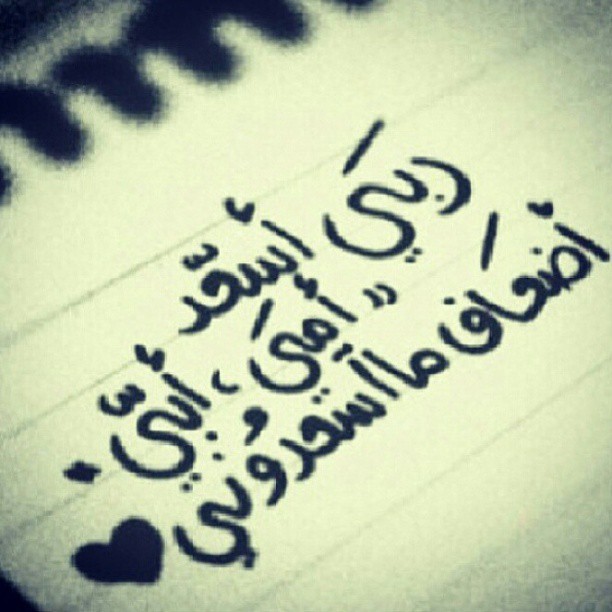 ربيَ أسعّد
" أميَ ، أبيّ .
أضعاف ماآسعدوُني ♥